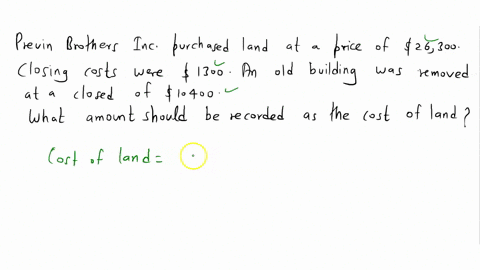 Previn Brothers Inc. purchased land at a price of $26,300.
Closing costs were $1300. An old building was removed
at a closed of $10400.
What amount should be recorded as the cost of land?
Cost of land =